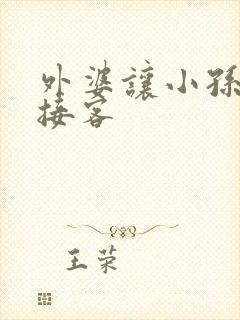 外婆讓小孫
接客
王荣